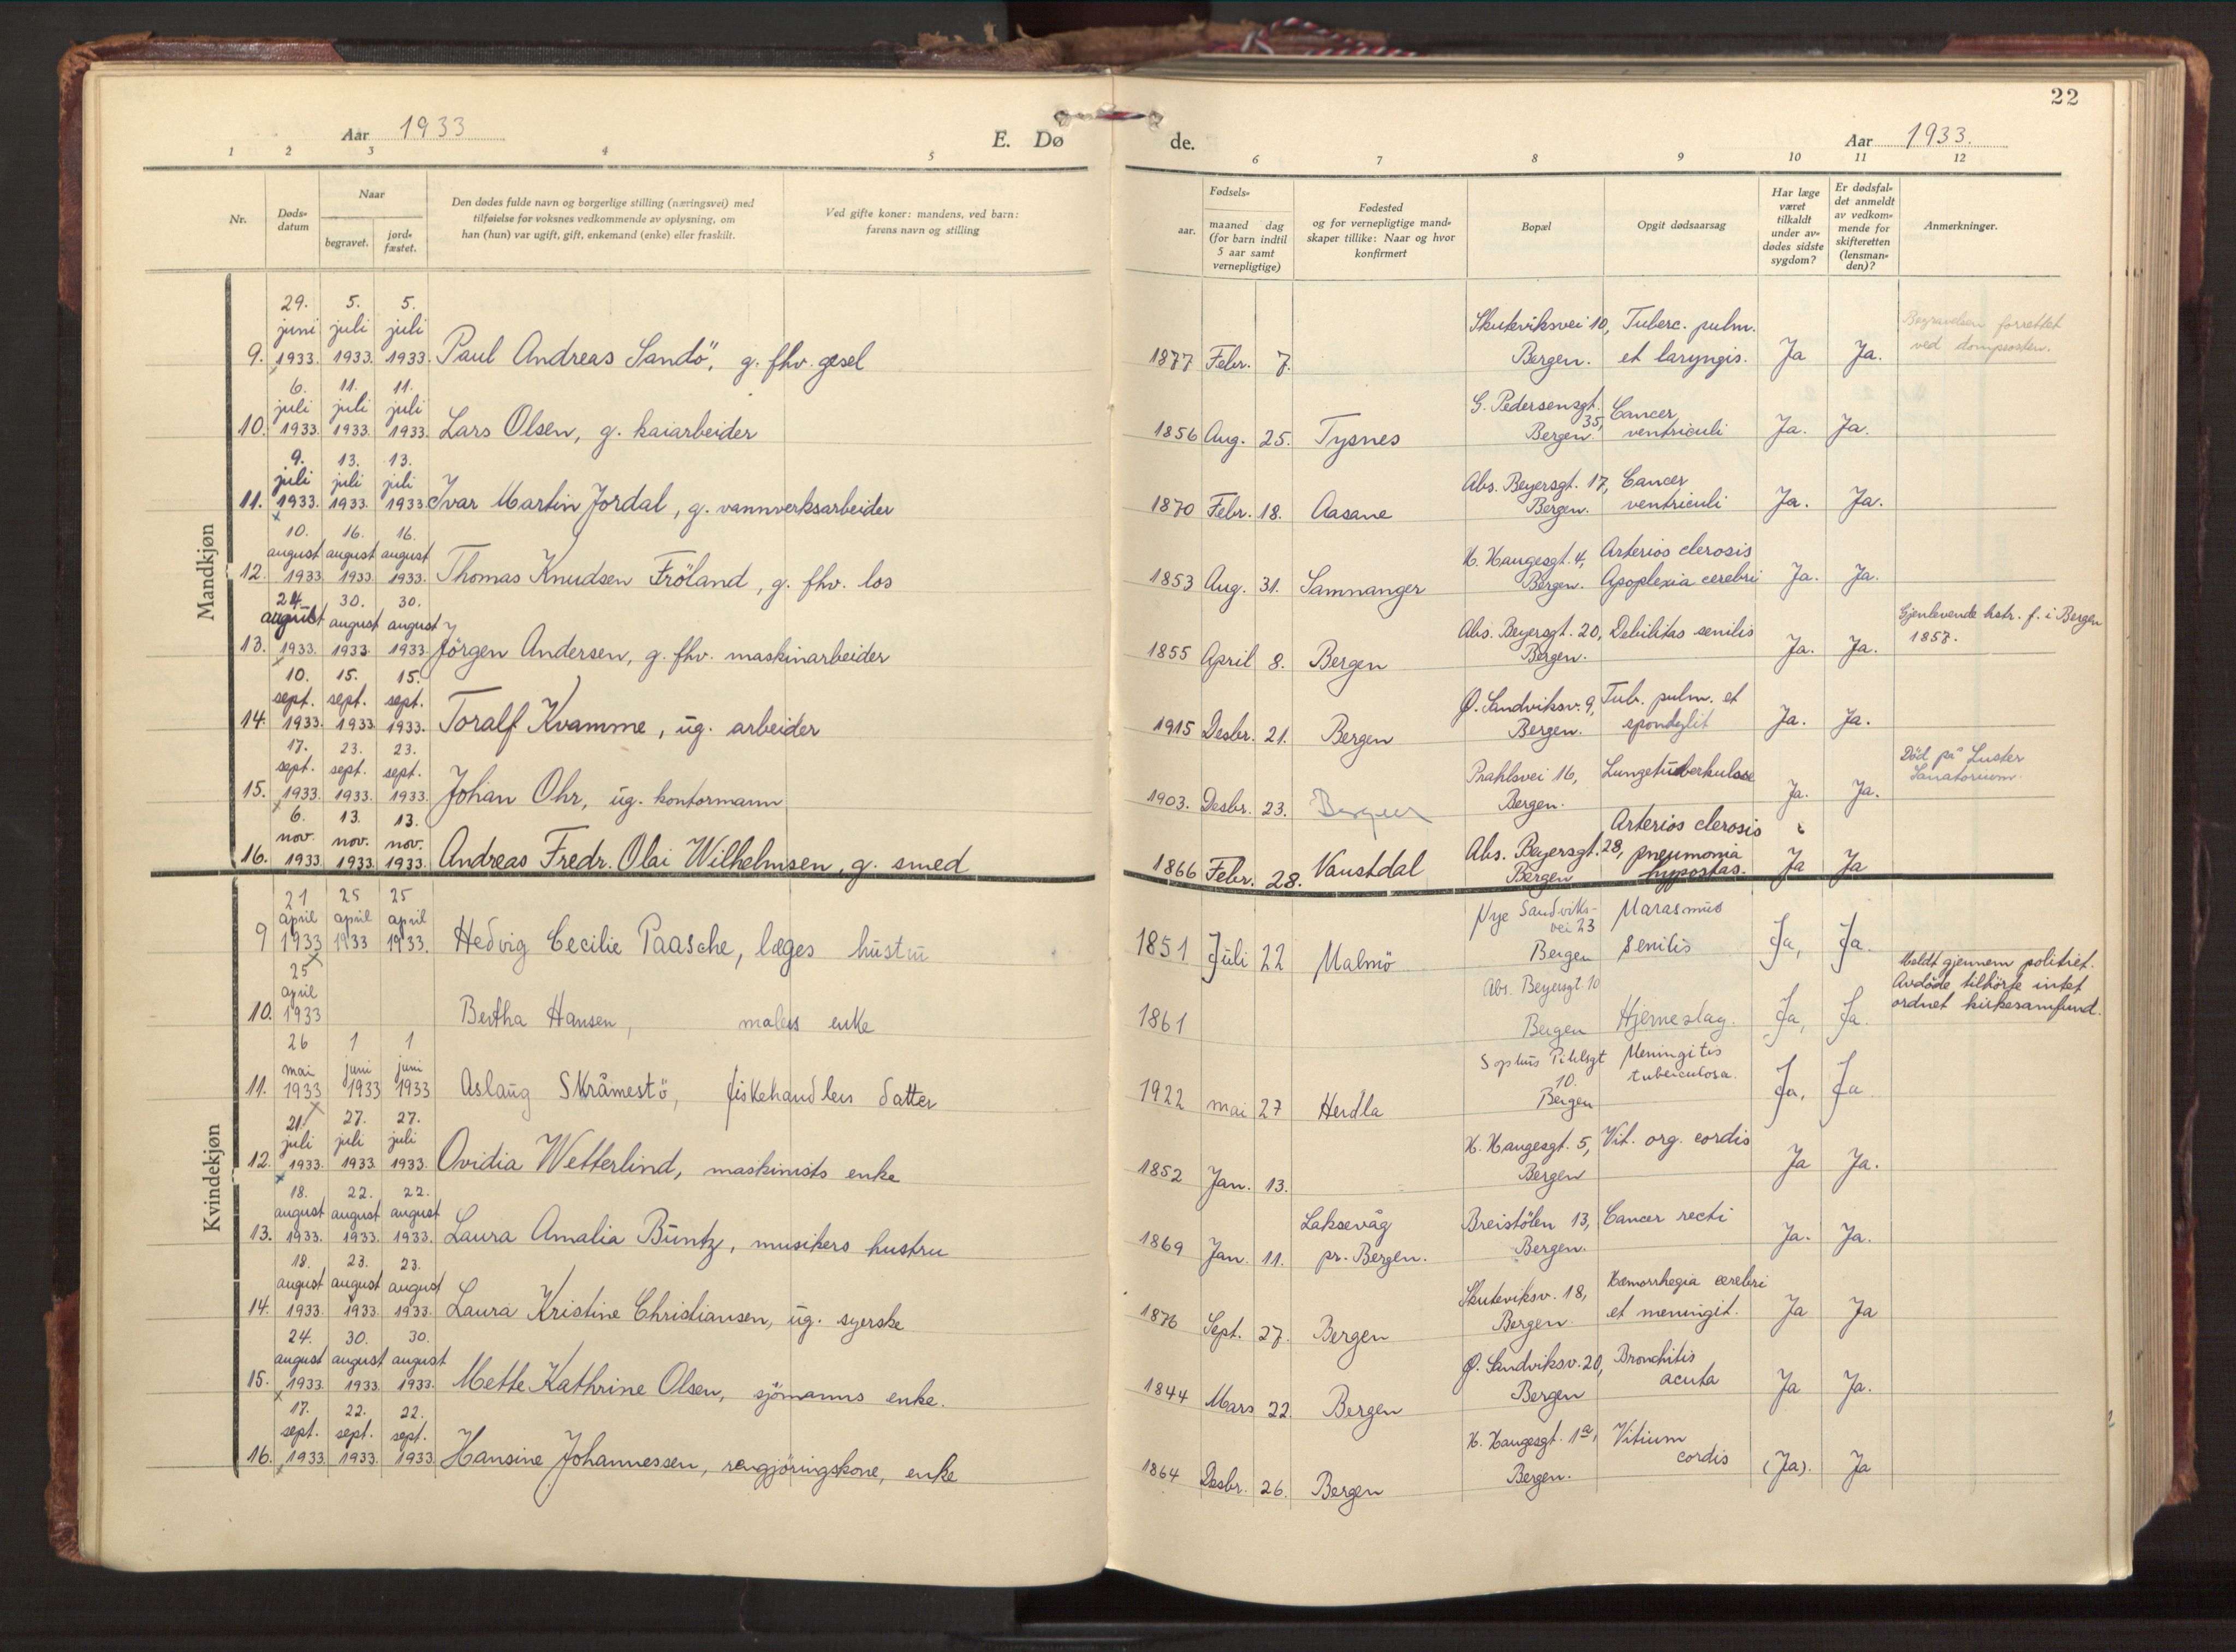 22
Aar 1933
E. Dø
de.
Aar 1933.
1 2 3 4 5
6 7 8 9 10 11 12
Nr.
Døds-
datum
Naar
begravet.
jord-
fæstet.
Den dødes fulde navn og borgerlige stilling (næringsvei) med
tilføielse for voksnes vedkommende av oplysning, om
han (hun) var ugift, gift, enkemand (enke) eller fraskilt.
Ved gifte koner: mandens, ved barn:
farens navn og stilling
Fødsels-
aar.
maaned dag
(for barn indtil
5 aar samt
vernepligtige)
Fødested
og for vernepligtige mand-
skaper tillike: Naar og hvor
konfirmert
Bopæl
Opgit dødsaarsag
Har læge
været
tilkaldt
under av-
dødes sidste
sygdom?
Er dødsfal-
det anmeldt
av vedkom-
mende for
skifteretten
(lensman-
den)?
Anmerkninger.
Mandkjøn
29. 5. 5.
juni juli juli
9. 1933. 1933. 1933. Paul Andreas Sandö, g. fhv. gesel
Skuteviksvei 10, Tuberc. pulm.
1877 Febr. 7. Bergen. et laryngis. Ja Ja.
Begravelsen forrettet
ved domprosten.
6. 11. 11.
juli juli juli
10. 1933. 1933. 1933. Lars Olsen, g. kaiarbeider
G. Pedersensgt. Cancer
35,
1856 Aug. 25. Tysnes Bergen. ventriculi Ja. Ja.
9. 13. 13.
juli juli juli
11. 1933. 1933. 1933 Ivar Martin Jordal, g. vannverksarbeider
Abs. Beyersgt. 17, Cancer
1870 Febr. 18. Aasane Bergen. ventriculi Ja. Ja.
10. 16. 16.
august august august
12. 1933 1933. 1933. Thomas Knudsen Fröland, g. fhv. los
H. Haugesgt. 4, Arterios clerosis
1853 Aug. 31. Samnanger Bergen. Apoplexia cerebri Ja. Ja.
24. 30. 30.
august august august
13. 1933. 1933. 1933 Jörgen Andersen, g. fhv. maskinarbeider
Abs. Beyersgt. 20, Debilitas senilis
1855 April 8. Bergen Bergen. Ja. Ja.
Gjenlevende hstr. f. i Bergen
1857.
10. 15. 15.
sept. sept. sept.
14. 1933. 1933 1933. Toralf Kvamme, ug. arbeider
Ø. Sandviksv. 9, Tub. pulm. et
1915 Desbr. 21. Bergen Bergen. spondylit Ja. Ja.
17. 23. 23.
sept. sept. sept.
15. 1933. 1933. 1933. Johan Ohr, ug. kontormann
Prahlsvei 16, Lungetuberkulose
1903. Desbr. 23. Bergen Bergen. Ja. Ja.
Död på Luster
Sanatorium.
6. 13. 13.
nov. nov. nov.
16. 1933 1933. 1933. Andreas Fredr. Olai Wilhelmsen, g. smed
Arterios clerosis
Abs. Beyersgt. 28, pneumonia
1866 Febr. 28. Vanstdal Bergen hypostas. Ja Ja
Kvindekjøn
21 25 25
april april april
9 1933 1933 1933. Hedvig Cecilie Paasche, læges hustru
Nye Sandviks- Marasmus
vei 23
1851 Juli 22 Malmö Bergen senilis Ja, Ja.
25
april
10. 1933 Bertha Hansen, malers enke
Abs. Beyersgt. 10
1861 Bergen Hjerneslag. Ja, Ja.
Meldt gjennem politiet.
Avdöde tilhörte intet
ordnet kirkesamfund.
26 1 1
mai juni juni
11. 1933 1933 1933 Aslaug Skråmestö, fiskehandlers datter
Sophus Pihlsgt Meningitis
10. tuberculosa.
1922 mai 27 Herdla Bergen Ja, Ja
21. 27. 27.
juli juli juli
12. 1933. 1933. 1933. Ovidia Wetterlind, maskinists enke
H. Haugesgt. 5, Vit. org. cordis
1852 Jan. 13. Bergen Ja Ja.
18. 22. 22.
august august august
13. 1933. 1933. 1933. Laura Amalia Buntz, musikers hustru
Laksevåg Breistölen 13, Cancer recti
1869 Jan. 11. pr. Bergen. Bergen. Ja. Ja.
18. 23. 23.
august august august
14. 1933. 1933. 1933. Laura Kristine Christiansen, ug. syerske
Skuteviksv. 18, Hæmorrhagia cerebri
1876 Sept. 27. Bergen Bergen. et meningit. Ja Ja
24. 30. 30.
august august august
15. 1933. 1933. 1933. Mette Kathrine Olsen, sjömanns enke.
Ø. Sandviksv. 20, Bronchitis
1844 Mars 22. Bergen Bergen acuta Ja Ja.
17. 22. 22.
sept. sept. sept.
16. 1933. 1933. 1933. Hansine Johannessen, rengjöringskone, enke
H. Haugesgt. 1a, Vitium
1864 Desbr. 26. Bergen Bergen. cordis (Ja). Ja